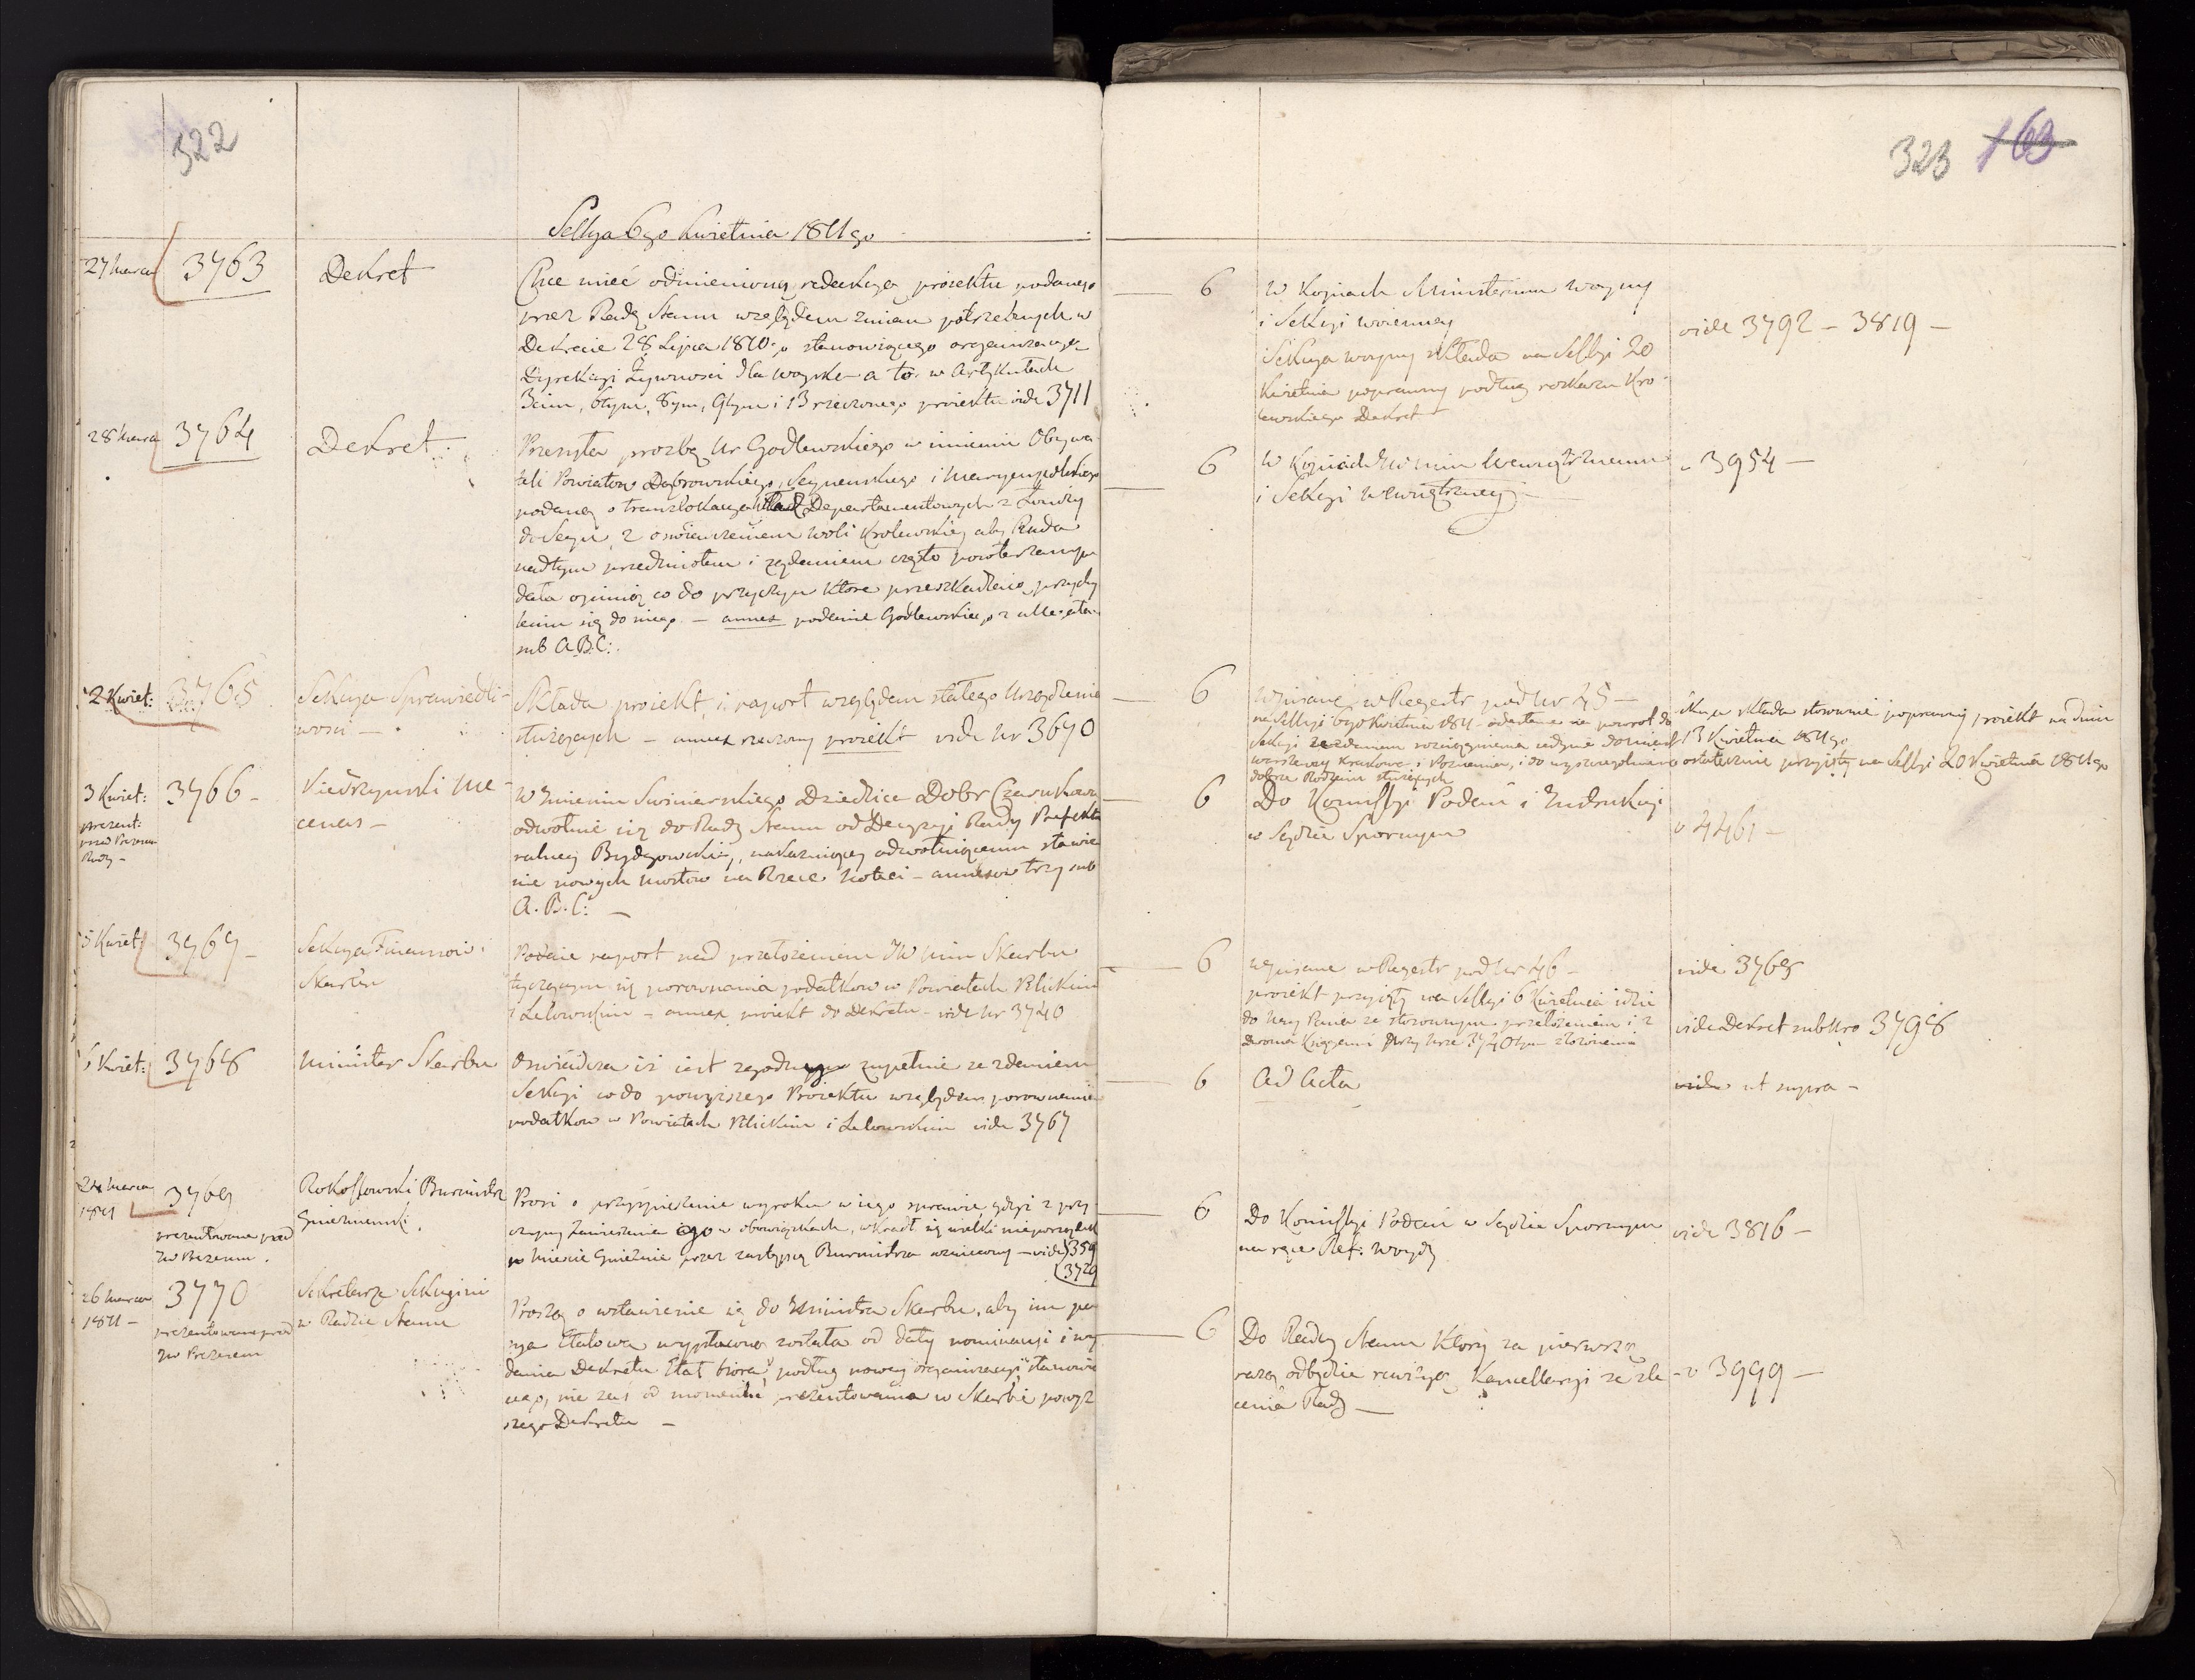 322
Sessya 6go Kwietnia 1811go
27 Marca
3763
Dekret
Chce mieć odmienioną redakcyą proiektu podanego
przez Radę Stanu względem zmian potrzebnych w
Dekrecie 28 Lipca 1810. stanowiącego organizacyą
Dyrekcyi Żywności dla woyska - a to w Artykułach
3cim, 6tym, 8ym, 9tym i 13 rzeczonego proiektu vide 3711
28 Marca
3764
Dekret
Przesyła prozbę Ur Godlewskiego w imieniu Obywa-
teli Powiatow Dąbrowskiego, Seynenskiego i Maryampolskiego
podaną o translokacyą Władz Departamentowych z Łomży
do Seyn, z oswiadczeniem woli Krolewskiey aby Rada
nad tym przedmiotem i żądaniem często powtarzanym
dała opinią co do przyczyn ktore przeszkadzaią przychy
leniu się do niego. - annex podanie Godlewskiego z allegata-
sub A.B.C:.
2 Kwiet:
3765
Sekcya Sprawiedli-
wosci -
Składa proiekt i raport względem stałego Urządzenia
służących - annex rzeczony proiekt vide Nr 3670
3 Kwiet:
prezent:
przed Prezesem
Rady -
3766 -
Niedrzynski Me-
cenas -
W Imieniu Swiniarskiego Dziedzica Dobr Czarnkowa
odwołuie się do Rady Stanu od Decyzyi Rady Prefektu
ralney Bydgowskiey, nakazuiącey odwołuiącemu stawie
nie nowych mostow na Rzece Noteci - annexa trzy sub
A.B.C: -
5 Kwiet:
3767 -
Sekcya Finansow i
Skarbu
Podaie raport nad przełożeniem JW Min Skarbu
tyczącym się porownania podatkow w Powiatach Pilickim
i Lelowskim - annex proiekt do Dekretu - vide Nr 3740
5 Kwiet:
3768
Minister Skarbu
Oswiadcza iż iest zgodnym zupełnie ze zdaniem
Sekcyi co do powyższego Proiektu względem porownania
podatkow w Powiatach Pilickim i Lelowskim vide 3767
24 Marca
1811
3769
prezentowane przed
JW Prezesem.
Rokossowski Burmistrz
Gnieznienski.
Prosi o przyspieszenie wyroku w iego sprawie gdyż z przy-
czyny zawieszenia iego w obowiązkach, wkradł się wielki nieporządek
w Miescie Gnieznie przez zastępcę Burmistrza wzniecony - vide 359
3729
26 Marca
1811 -
3770
prezentowane przed
JW Prezesem
Sekretarze Sekcyini
w Radzie Stanu
Proszą o wstawienie się do Ministra Skarbu, aby im pen
sya Etatowa wypłacona została od daty nominacyi i wy
dania Dekretu Etat biora podług nowey organizacyi stanowią
cego, nie zas od momentu prezentowania w Skarbie powyż
szego Dekretu -
323 163
6
W Kopiach Ministerium Woyny
i Sekcyi woienney
Sekcya woyny składa na Sessyi 20
Kwietnia poprawny podług rozkazu Kro-
lewskiego Dekret
vide 3792 - 3819 -
6
W Kopiach JW Min Wewnętrznemu
i Sekcyi Wewnętrzney -
v 3954 -
6
Wpisane w Regestr pod Nr 45 -
na Sessyi 6go Kwietnia 1811 odesłane na powrot do
Sekcyi ze zdaniem rozciągnienia iedynie do miast
Warszawy Krakowa i Poznania, i do wyszczegolnienia
dobrze Rodzaiu służących
Sekcya składa stosownie poprawny proiekt na dniu
13 Kwietnia 1811go
ostatecznie przyięty na Sessyi 20 Kwietnia 1811go
6
Do Kommissyi Podań i Instrukcyi
w Sądzie Spornym
v 4461 -
6
wpisane w Regestr pod Nr 46 -
proiekt przyięty na Sessyi 6 Kwietnia idzie
do Nay Pana ze stosownym przełożeniem i z
dwoma Księgami przy Nrze 3740tym złożonemi
vide 3768
vide Dekret sub Nro 3798
6
Ad Acta
vide ut supra -
6
Do Komissyi Podań w Sądzie Spornym
na ręce Ref: Woydy
vide 3816 -
6
Do Rady Stanu Ktory za pierwszą
razą odbędzie rewizyą Kancellaryi ze zle
cenia Rady -
- v 3999 -